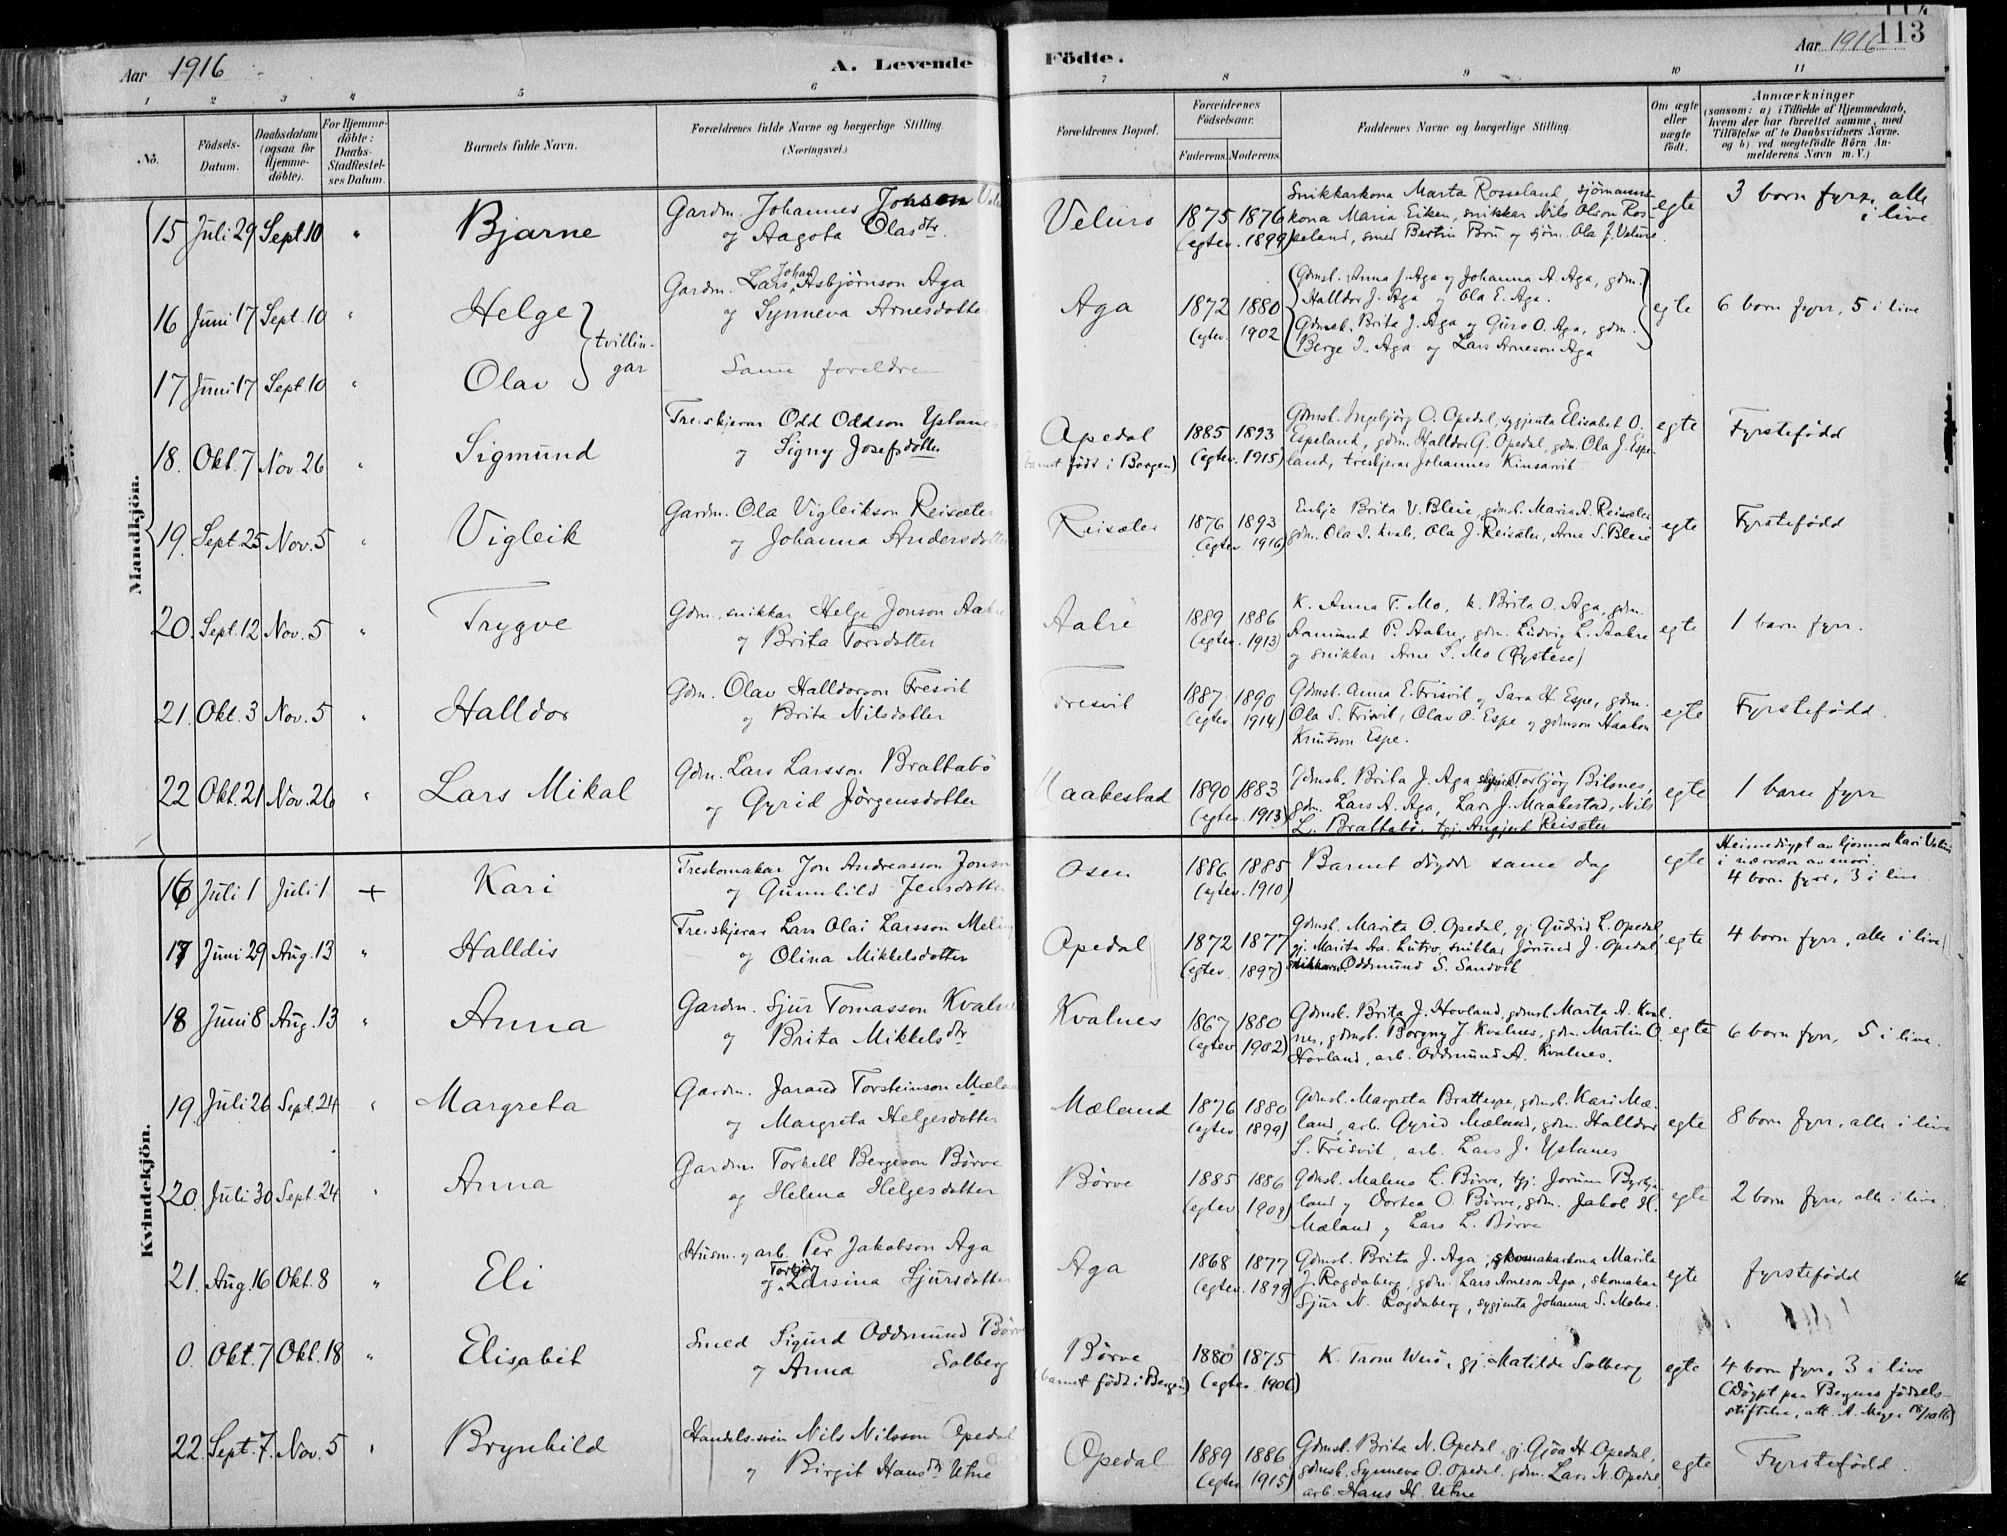 113
Aar 1916
A. Levende
Födte.
Aar 1916
1 2 3 4 5 6 7 8 9 10 11
No.
Födsels-
Datum.
Daabsdatum
(ogsaa for
Hjemme-
döbte).
For Hjemme-
döbte:
Daabs-
Stadfæstel-
ses Datum.
Barnets fulde Navn.
Forældrenes fulde Navne og borgerlige Stilling.
(Næringsvei.)
Forældrenes Bopæl.
Forældrenes
Födselsaar.
Faderens. Moderens.
Faddernes Navne og borgerlige Stilling.
Om ægte
eller
uægte
födt.
Anmærkninger
(saasom: a) i Tilfælde af Hjemmedaab,
hvem der har forrettet samme, med
Tilföielse af to Daabsvidners Navne.
og b) ved uægtefödte Börn An-
melderens Navn m. V.)
Mandkjön.
15 Juli 29 Sept 10 " Bjarne
Gardm. Johannes Jonson
og Aagota Olasdtr.
Velure
1875 1876
(egtev. 1899)
Snikkarkona Marta Rosseland, sjömanns-
kona Maria Eiken, snikkar Nils Olson Ros-
seland, smed Bertin Bru og sjöm. Ola J. Velure.
egte
3 born fyrr, alle
i live
16 Juni 17 Sept. 10 " Helge
Gardm. Lars Johan Asbjørnson Aga
og Synneva Arnesdotter
tvillin-
gar
Aga
1872 1880
(egtev. 1902
Gdmsk. Anna J. Aga og Johanna A. Aga, gdm.
Halldor J. Aga og Ola E. Aga.
Gdmsk. Brita J. Aga og Guro O. Aga, gdm.
Berge I. Aga og Lars Arneson Aga
egte
6 born fyrr, 5 i live
17 Juni 17 Sept. 10 " Olav
Same foreldre
18. Okt. 7 Nov 26 " Sigmund
Treskjerar Odd Oddson Ystanes
og Signy Josefsdotter
Opedal
(barnet född i Bergen)
1885 1893
(egtev. 1915)
Gdmsk. Ingebjörg O. Opedal, sygjenta Elisabet O.
Espeland, gdm. Halldor G. Opedal, gdm. Ola J. Espe-
land, treskjerar Johannes Kinsarvik
egte
Fyrstefödd
19. Sept. 25 Nov. 5 " Vigleik
Gardm. Ola Vigleikson Reisæter
og Johanna Andersdotter
Reisæter
1876 1893
(egtev. 1916)
Enkja Brita V. Bleie, gdmsk. Maria A. Reisæter
gdm. Ola I. Kvale, Ola J. Reisæter, Arne S. Bleie
egte
Fyrstefödd
20. Sept. 12 Nov. 5 " Trygve
Gdm., snikkar Helge Jonson Aakre
og Brita Torsdotter
Aakre
1889 1886
(egtev. 1913)
K. Anna T. Mo, k. Brita O. Aga, gdm.
Aamund P. Aakre, gdm. Ludvig L. Aakre
og snikkar Arne S. Mo (Öystese)
egte
1 barn fyrr.
21. Okt. 3 Nov. 5 " Halldor
Gdm. Olav Halldorson Tresvik
og Brita Nilsdotter
Tresvik
1887 1890
(egtev. 1914)
Gdmsk. Anna E. Frisvik og Sara H. Espe, gdm.
Ola S. Frisvik, Olav O. Espe og gdmson Haakon
Knutson Espe.
egte
Fyrstefödd.
22 Okt. 21 Nov. 26 " Lars Mikal
Gdm. Lars Larsson Brattabö
og Gyrid Jörgensdotter
Maakestad
1890 1883
(egtev. 1913)
Gdmsk. Brita J. Aga, Torbjörg Bilsnes,
gdm. Lars A. Aga, Lars J. Maakestad, Nils
L. Brattabö, tgj. Angjerd Reisæter
egte
1 barn fyrr
Kvindekjön.
16 Juli 1 Juli 1 + Kari
Treskomakar Jon Andreasson Jonson
og Gunnhild Jensdotter
Osen
1886 1885
(egtev. 1910)
Barnet döydde same dag
egte
Heimedöypt av ljosmor Kari Velure
i nærvære av mori.
4 born fyrr, 3 i live
17 Juni 29 Aug. 13 " Halldis
Treskjerar Lars Olai Larsson Meling
og Olina Mikkelsdotter
Opedal
1872 1877
(egtev. 1897)
Gdmsk. Marita O. Opedal, gj. Gudrid L. Opedal,
gj. Marita Aa. Lutro, snikkar Jörund J. Opedal,
snikkarsv. Oddmund S. Sandvik
egte
4 born fyrr, alle i live
18 Juni 8 Aug. 13 " Anna
Gardm. Sjur Tomasson Kvalnes
og Brita Mikkelsdtr
Kvalnes
1867 1880
(egtev 1902)
Gdmsk. Brita J. Hovland, gdmsk. Marta A. Kval-
nes, gdmsk. Borgny J. Kvalnes, gdm. Martin O.
Hovland, arb. Oddmund A. Kvalnes.
egte
6 born fyrr, 5 i live.
19. Juli 26 Sept. 24 " Margreta
Gardm. Jarand Torsteinson Mæland
og Margreta Helgesdotter
Mæland
1876 1880
(egtev. 1899)
Gdmsk. Margreta Brattespe, gdmsk. Kari Mæ-
land, arb. Gyrid Mæland, gdm. Halldor
S. Frisvik, arb. Lars J. Ystanes
egte
8 born fyrr, alle i live
20. Juli 30 Sept. 24 " Anna
Gardm. Torkell Bergeson Börve
og Helena Helgesdotter
Börve
1885 1886
(egtev 1909)
Gdmsk. Malena L. Börve, tgj. Jorunn Byrkje-
land og Dortea O. Börve, gdm. Jakob H.
Mæland og Lars L. Börve
egte
2 born fyrr, alle i live.
21. Aug. 16 Okt. 8 " Eli
Husm. og arb. Per Jakobson Aga
og Torbjör Larsina Sjursdotter
Aga
1868 1877
(egtev. 1899)
Gdmsk. Brita J. Aga, skomakarkona Marita
J. Rogdaberg, gdm. Lars Arneson Aga, skomakar
Sjur N. Rogdaberg, sygjenta Johanna S. Molne.
egte
fyrstefödd
0. Okt. 7 Okt. 18 " Elisabet
Smed Sigurd Oddmund Börve
og Anna Solberg
Börve
(barnet född i Bergen)
1880 1875
(egtev. 1906)
K. Trone Werö, gj. Matilde Solberg
egte
4 born fyrr, 3 i live
(Döypt paa Bergens födsels-
stiftelse, att. A. Meyer 18/10 16)
22. Sept. 7. Nov. 5 " Brynhild
Handelssvein Nils Nilsson Opedal
og Birgit Hansdtr Utne
Opedal
1889 1886
(egtev. 1915)
Gdmsk. Brita N. Opedal, gj. Gjöa H. Opedal,
gdmsk. Synneva O. Opedal, gdm. Lars N. Opedal
arb. Hans H. Utne
egte
Fyrstefödd.